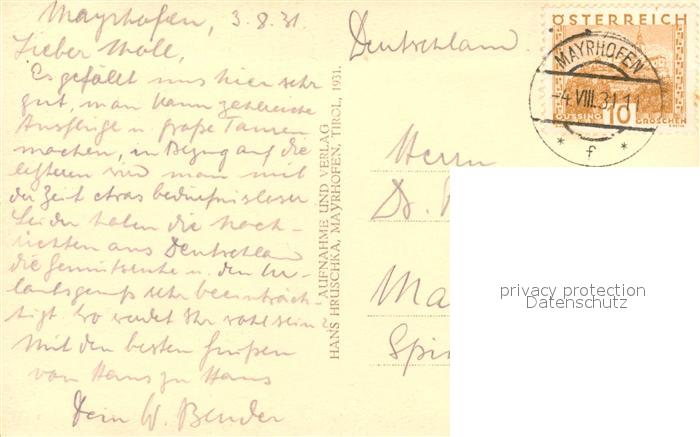 Mayrhofen, 3.8.31.
Lieber Moll,
Es gefällt uns hier sehr
gut, man kann zahlreiche
Ausflüge u große Touren
machen, in Bezug auf die
letzteren wird man mit
der Zeit etwas bedürfnisloser
Leider haben die Nach-
richten aus Deutschland
die Gemütsruhe u. den Ur-
laubsgenuß sehr beeinträch-
tigt. Wo werdet Ihr wohl sein?
Mit den besten Grüßen
von Haus zu Haus
Dein W. Bender
AUFNAHME UND VERLAG
HANS HRUSCHKA, MAYRHOFEN, TIROL, 1931.
Deutschland
Herrn
Dr.
Ma
Spi
ÖSTERREICH
GÜSSING 10 GROSCHEN
MAYRHOFEN
-4.VIII.31.11
* f *
privacy protection
Datenschutz